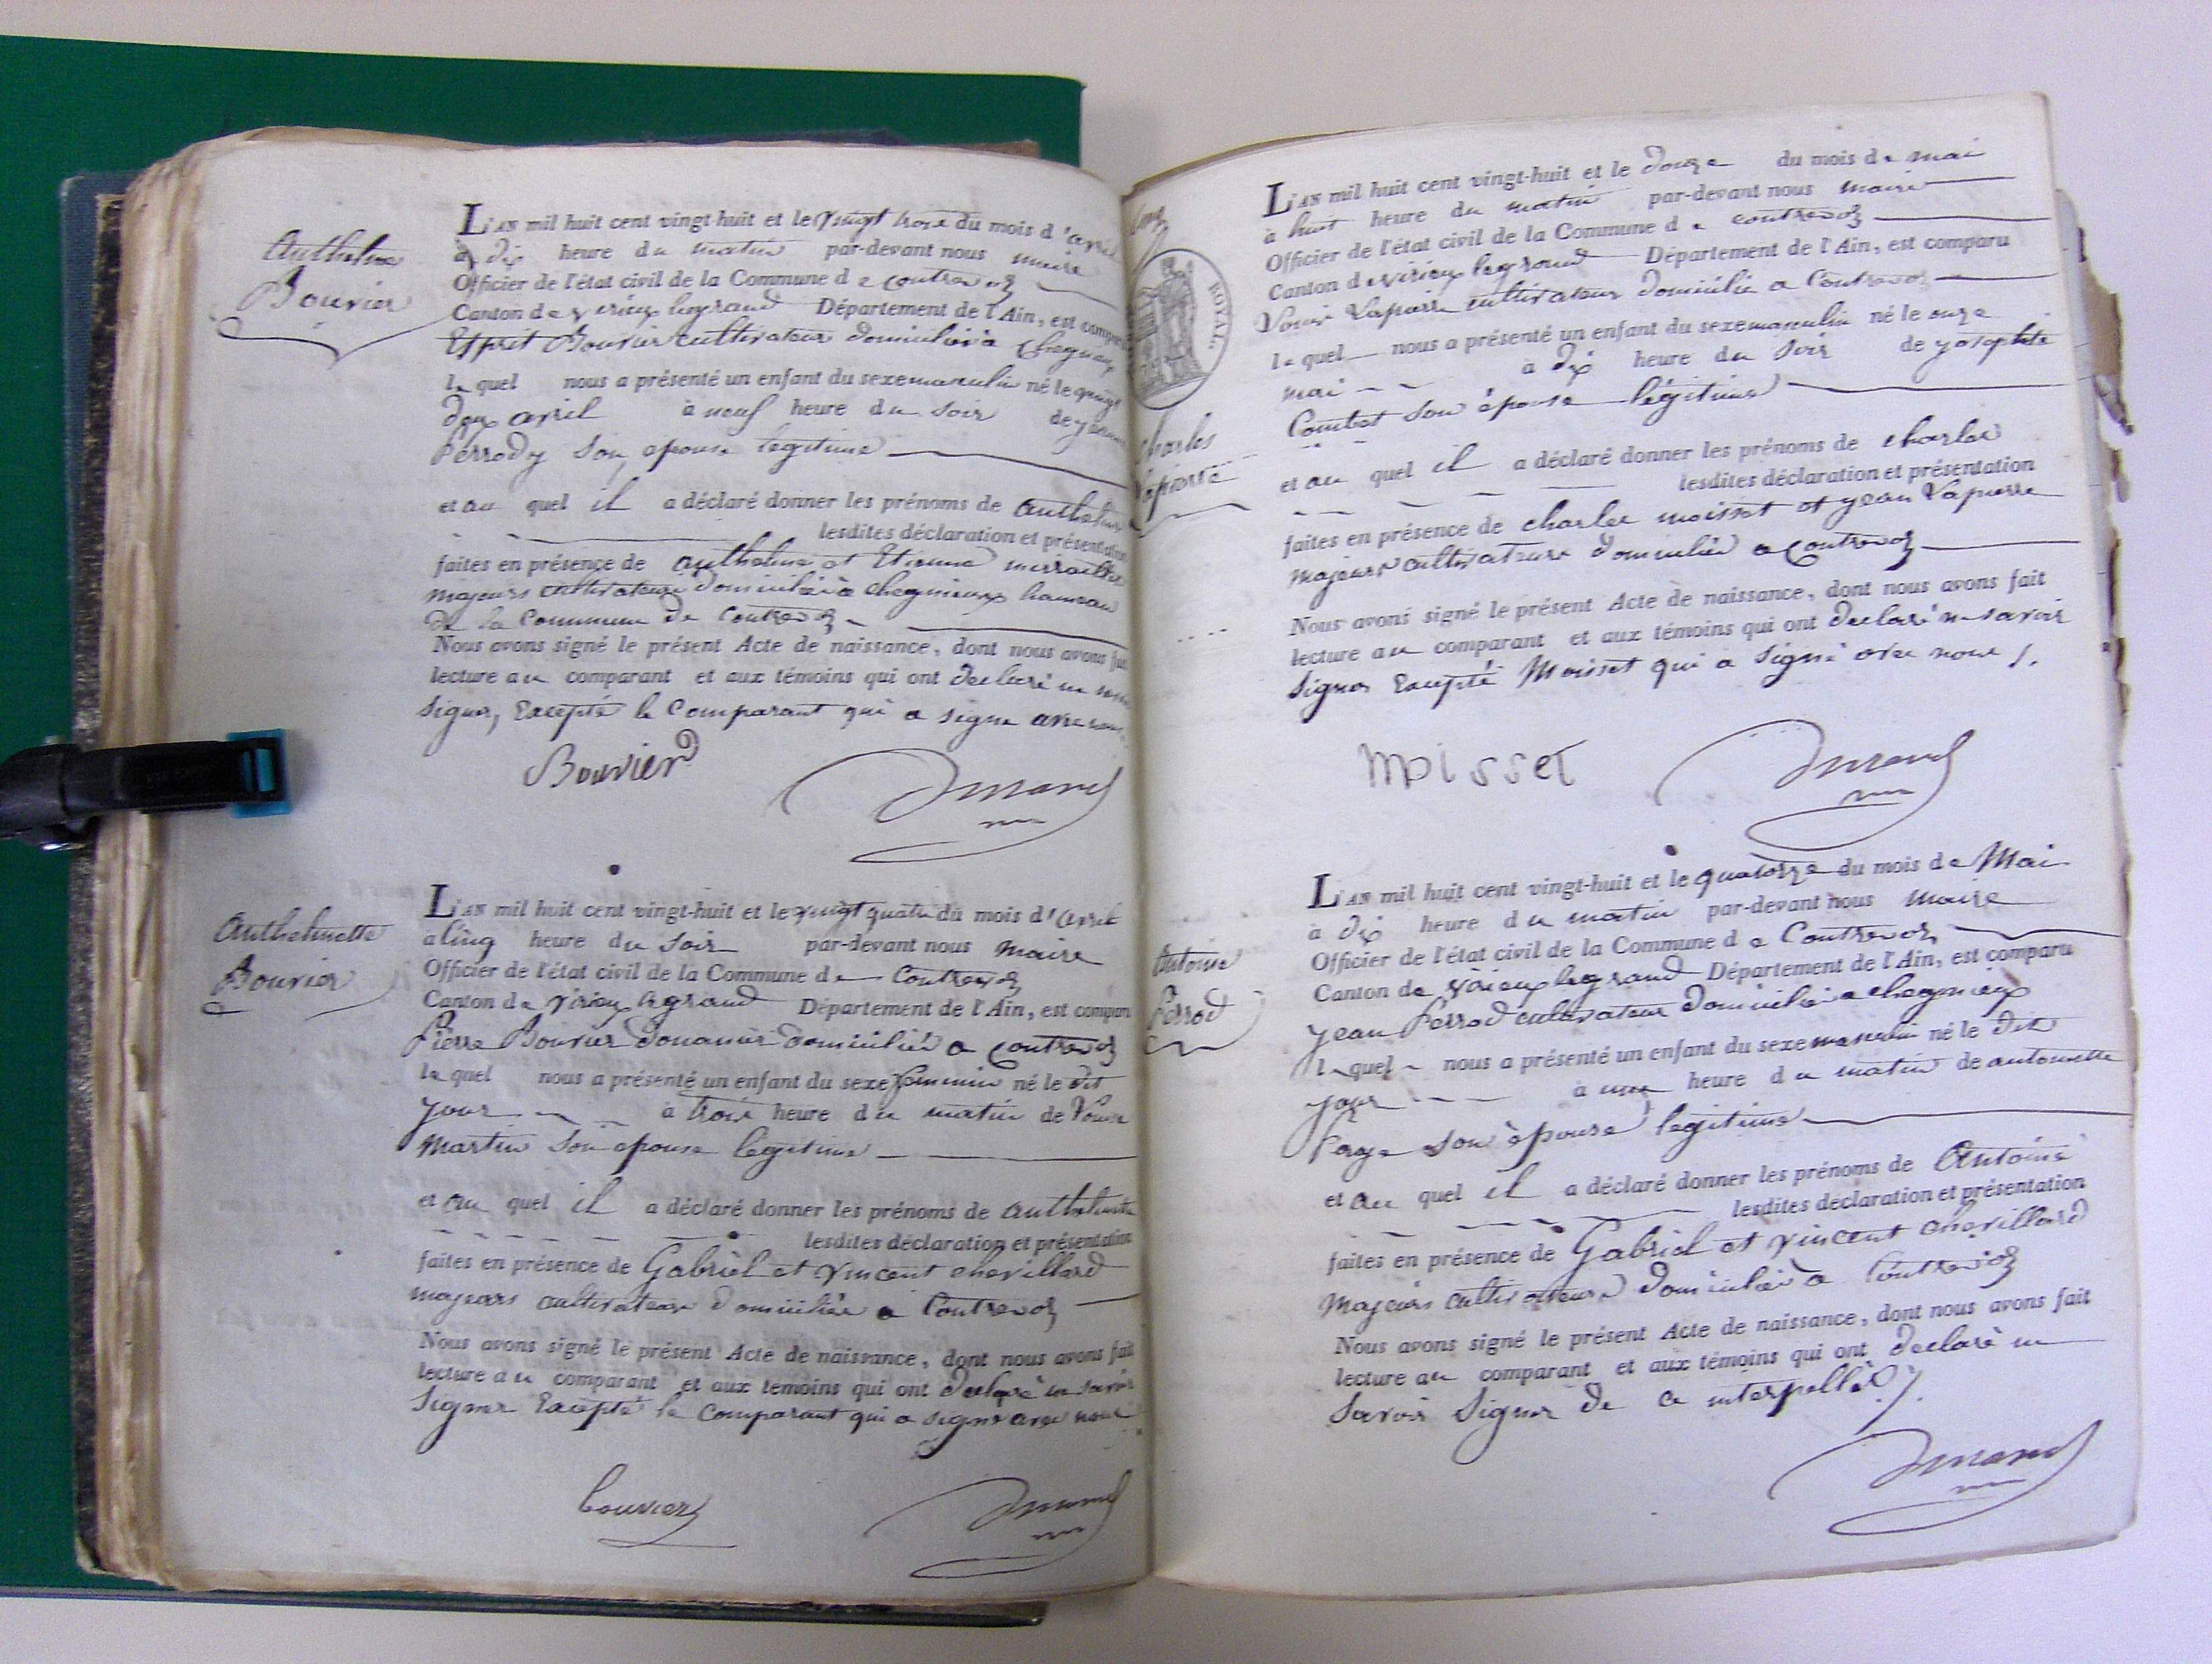 Anthelme
Bouvier
L'AN mil huit cent vingt-huit et le vingt trois du mois d'avril
à dix heure du matin par-devant nous maire
Officier de l'état civil de la Commune de Contrevoz
Canton de virieux legrand Département de l'Ain, est comparu
Esprit Bouvier cultivateur domicilié à Chegnieux
le quel nous a présenté un enfant du sexe masculin né le vingt
deux avril à neuf heure du soir de
Perrody son epouse legitime
et au quel il a déclaré donner les prénoms de Anthelme
lesdites déclaration et présentation
faites en présence de Anthelme et Etienne
majeurs cultivateurs domiciliés à Chegnieux hameau
de la Commune de Contrevoz
Nous avons signé le présent Acte de naissance, dont nous avons fait
lecture au comparant et aux témoins qui ont declaré ne savoir
signer, Excepté le Comparant qui a signé avec nous
Bouvier Durand
Anthelmette
Bouvier
L'AN mil huit cent vingt-huit et le vingt quatre du mois d'avril
à cinq heure du soir par-devant nous maire
Officier de l'état civil de la Commune de Contrevoz
Canton de virieux legrand Département de l'Ain, est comparu
Pierre Bouvier douanier domicilié a Contrevoz
le quel nous a présenté un enfant du sexe feminin né le dit
jour à trois heure du matin de Louise
Martin son epouse légitime
et au quel il a déclaré donner les prénoms de Anthelmette
lesdites déclaration et présentation
faites en présence de Gabriel et vincent chevillard
majeurs cultivateurs domiciliés a Contrevoz
Nous avons signé le présent Acte de naissance, dont nous avons fait
lecture au comparant et aux témoins qui ont declaré ne savoir
signer Excepté le Comparant qui a signé avec nous
bouvier Durand
ROYAL
Charles
Lapierre
L'AN mil huit cent vingt-huit et le douze du mois de mai
à huit heure du matin par-devant nous maire
Officier de l'état civil de la Commune de contrevoz
Canton de virieux legrand Département de l'Ain, est comparu
Louis Lapierre cultivateur domicilié a Contrevoz
le quel nous a présenté un enfant du sexe masculin né le onze
mai à dix heure du soir de josephte
Combet son épouse légitime
et au quel il a déclaré donner les prénoms de charles
lesdites déclaration et présentation
faites en présence de charles moisset et jean Lapierre
majeurs cultivateurs domiciliés a Contrevoz
Nous avons signé le présent Acte de naissance, dont nous avons fait
lecture au comparant et aux témoins qui ont declaré ne savoir
signer Excepté Moisset qui a signé avec nous
moisset Durand
Antoine
Perrod
L'AN mil huit cent vingt-huit et le quatorze du mois de Mai
à dix heure du matin par-devant nous maire
Officier de l'état civil de la Commune de Contrevoz
Canton de virieux legrand Département de l'Ain, est comparu
jean Perrod cultivateur domicilié a chegnieux
le quel nous a présenté un enfant du sexe masculin né le dit
jour à une heure du matin de antoinette
son épouse legitime
et au quel il a déclaré donner les prénoms de Antoine
lesdites déclaration et présentation
faites en présence de Gabriel et vincent chevillard
majeurs cultivateurs domiciliés a Contrevoz
Nous avons signé le présent Acte de naissance, dont nous avons fait
lecture au comparant et aux témoins qui ont declaré ne
savoir signer de ce interpellés
Durand